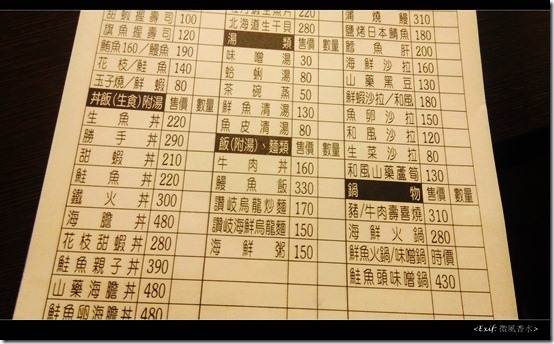 甜蝦握壽司 100
旗魚握壽司 120
鮪魚160/鰻魚 190
花枝/鮭魚 140
玉子燒/鮮蝦 80
丼飯(生食)附湯 售價 數量
生魚丼 220
勝手丼 290
甜蝦丼 210
鮭魚丼 220
鐵火丼 300
海膽丼 480
花枝甜蝦丼 280
鮭魚親子丼 390
山藥海膽丼 480
鮭魚卵海膽丼 480
220
北海道生干貝 280
湯類 售價 數量
味噌湯 30
蛤蜊湯 80
茶碗蒸 50
鮮魚清湯 130
魚皮清湯 80
飯(附湯)、麵類 售價 數量
牛肉丼 160
鰻魚飯 330
讚岐烏龍炒麵 170
讚岐海鮮烏龍麵 150
海鮮粥 150
蒲燒鰻 310
鹽烤日本鯖魚 180
鱈魚肝 200
海鮮沙拉 160
山藥黑豆 130
鮮蝦沙拉/和風 180
魚卵沙拉 150
和風沙拉 120
生菜沙拉 80
和風山藥蘆筍 130
鍋物 售價 數量
豬/牛肉壽喜燒 310
海鮮火鍋 280
鮮魚火鍋/味噌鍋 時價
鮭魚頭味噌鍋 430
<Exif: 微風香水>